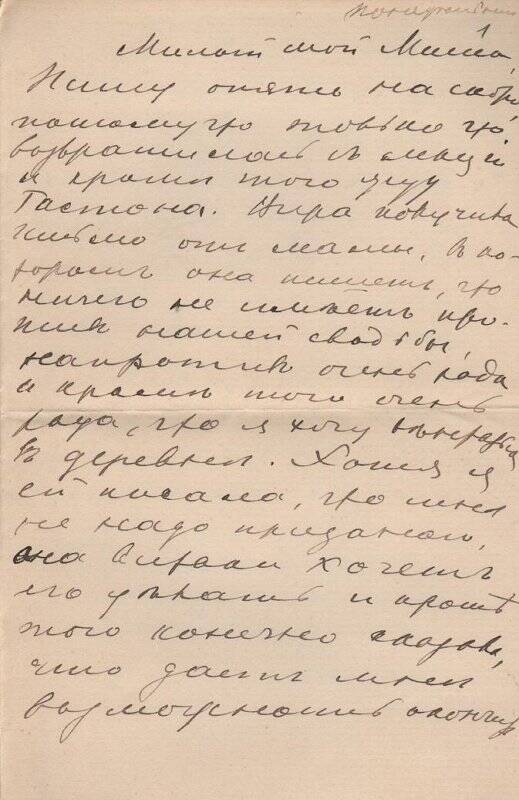 1
Милый мой Миша,
Пишу опять на скоро,
потому что только что
возвратилась съ
и кромѣ того жду
Гастона. Вчера получила
письмо отъ мамы, въ ко-
торомъ она пишетъ, что
ничего не имѣетъ про-
тив нашей свадьбы,
напротив очень рада
и кромѣ того очень
рада, что я хочу вѣнчаться
въ деревнѣ. Хотя я
ей писала, что мнѣ
не надо приданого,
она всетаки хочетъ
его дѣлать и кромѣ
того конечно сказала,
что дастъ мнѣ
возможность окончить